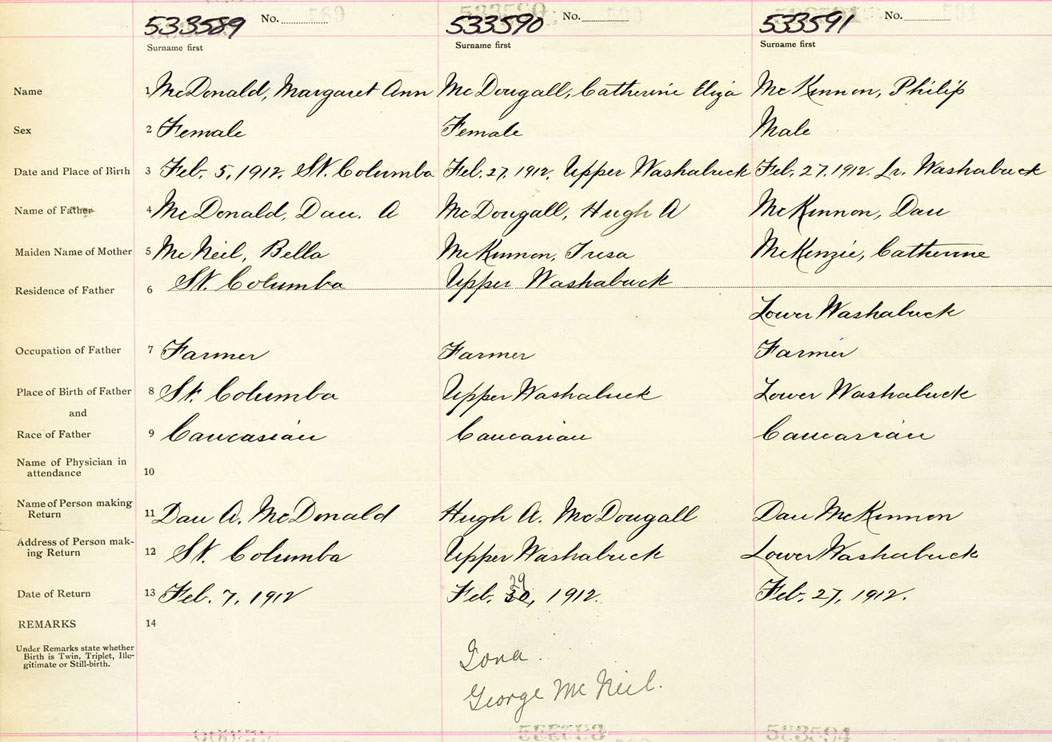 533589 No. 533590 No. 533591 No.
Surname first Surname first Surname first
Name 1 McDonald, Margaret Ann McDougall, Catherine Eliza McKinnon, Philip
Sex 2 Female Female Male
Date and Place of Birth 3 Feb. 5, 1912, St. Columba Feb. 27, 1912, Upper Washabuck Feb. 27, 1912 Lr. Washabuck
Name of Father 4 McDonald, Dan. A McDougall, Hugh A McKinnon, Dan
Maiden Name of Mother 5 McNeil, Bella McKinnon, Tresa McKenzie, Catherine
Residence of Father 6 St. Columba Upper Washabuck Lower Washabuck
Occupation of Father 7 Farmer Farmer Farmer
Place of Birth of Father 8 St. Columba Upper Washabuck Lower Washabuck
and
Race of Father 9 Caucasian Caucasian Caucasian
Name of Physician in
attendance 10
Name of Person making
Return 11 Dan A. McDonald Hugh A. McDougall Dan McKinnon
Address of Person mak-
ing Return 12 St. Columba Upper Washabuck Lower Washabuck
Date of Return 13 Feb. 7, 1912 Feb. 29, 1912. Feb. 27, 1912.
REMARKS 14
Under Remarks state whether
Birth is Twin, Triplet, Ille-
gitimate or Still-birth.
Iona.
George McNeil.